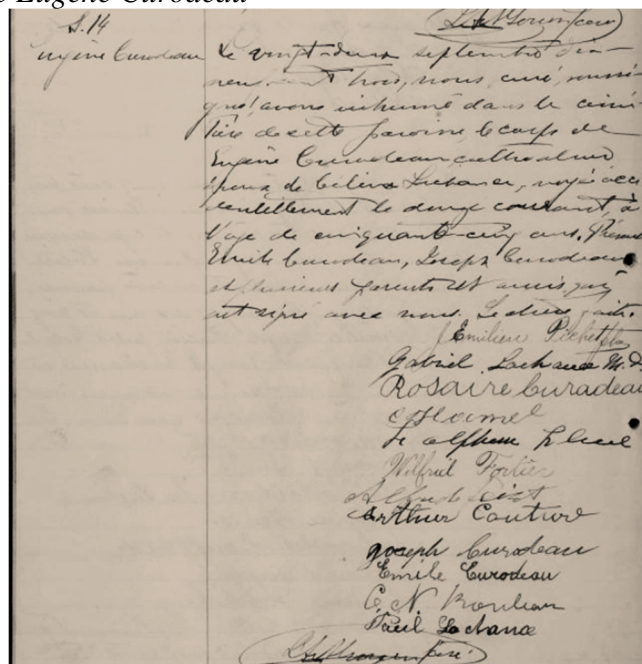 Eugène Curodeau
S. 14
Eugène Curodeau
Le vingt-deux septembre dix-
neuf cent trois, nous, curé, soussi-
gné, avons inhumé dans le cime-
tière de cette paroisse le corps de
Eugène Curodeau, cultivateur,
époux de Lachance, noyé acci-
dentellement le douze courant, à
l'age de cinquante-cinq ans. Présents
Emile Curodeau, Joseph Curodeau
et plusieurs parents et amis qui
ont signé avec nous. Lecture faite.
Emilien Pichet
Gabriel Lachance M.D.
Rosaire Curodeau
Wilfrid Fortier
Arthur Couture
Joseph Curodeau
Emile Curodeau
Paul Lachance